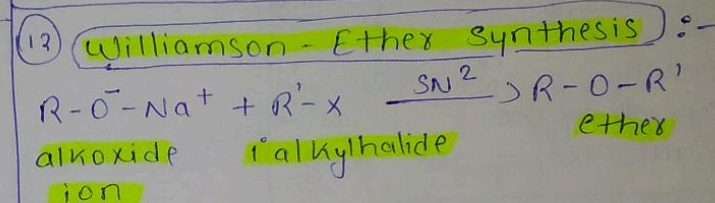 (13) Williamson - Ether Synthesis :-
R-O⁻-Na⁺ + R'-X —SN²→ R-O-R'
alkoxide 1° alkylhalide ether
ion